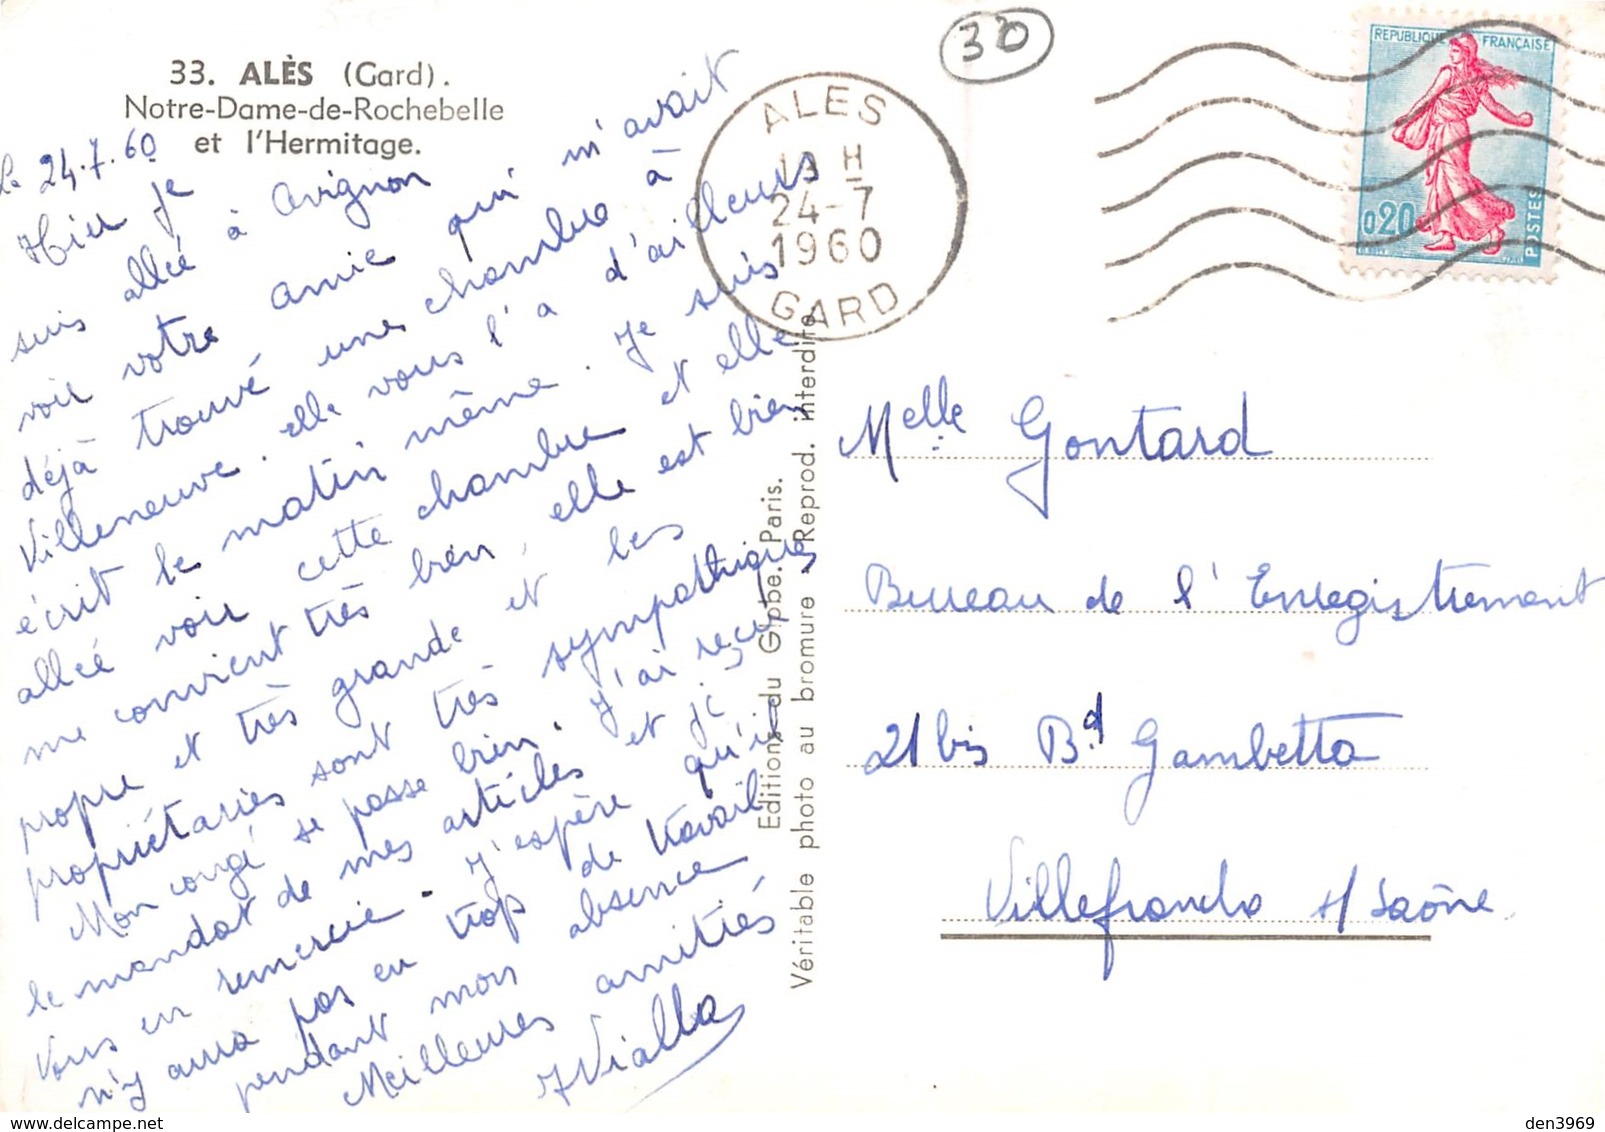 33. ALÈS (Gard).
Notre-Dame-de-Rochebelle
et l'Hermitage.
Le 24.7.60
Hier je
suis allée à Avignon
voir votre amie qui m'avait
déjà trouvé une chambre à
Villeneuve. elle vous l'a d'ailleurs
écrit le matin même. Je suis
allée voir cette chambre et elle
me convient très bien, elle est bien
propre et très grande et les
propriétaires sont très sympathiques
Mon congé se passe bien. J'ai reçu
le mandat de mes articles et je
vous en remercie. J'espère qu'il
n'y aura pas eu trop de travail
pendant mon absence
Meilleures amitiés
JVialla
Editions du Globe. Paris.
Véritable photo au bromure - Reprod. interdite
33
ALES
H
24-7
1960
GARD
REPUBLIQUE FRANÇAISE
0,20
POSTES
Melle Gontard
Bureau de l'Enregistrement
21 bis Bd Gambetta
Villefranche s/ Saône
den3969